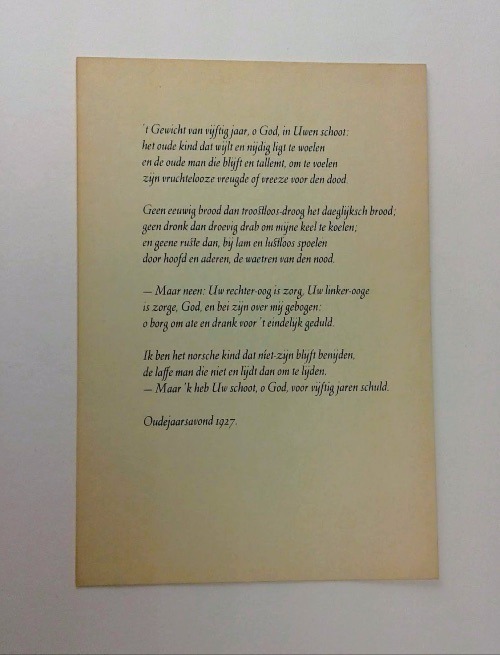 't Gewicht van vijftig jaar, o God, in Uwen schoot:
het oude kind dat wijlt en nijdig ligt te woelen
en de oude man die blijft en tallemt, om te voelen
zijn vruchtelooze vreugde of vreeze voor den dood.
Geen eeuwig brood dan troostloos-droog het daeglijksch brood;
geen dronk dan droevig drab om mijne keel te koelen;
en geene ruste dan, bij lam en lustloos spoelen
door hoofd en aderen, de waetren van den nood.
— Maar neen: Uw rechter-oog is zorg, Uw linker-ooge
is zorge, God, en bei zijn over mij gebogen:
o borg om ate en drank voor 't eindelijk geduld.
Ik ben het norsche kind dat niet-zijn blijft benijden,
de laffe man die niet en lijdt dan om te lijden.
— Maar 'k heb Uw schoot, o God, voor vijftig jaren schuld.
Oudejaarsavond 1927.